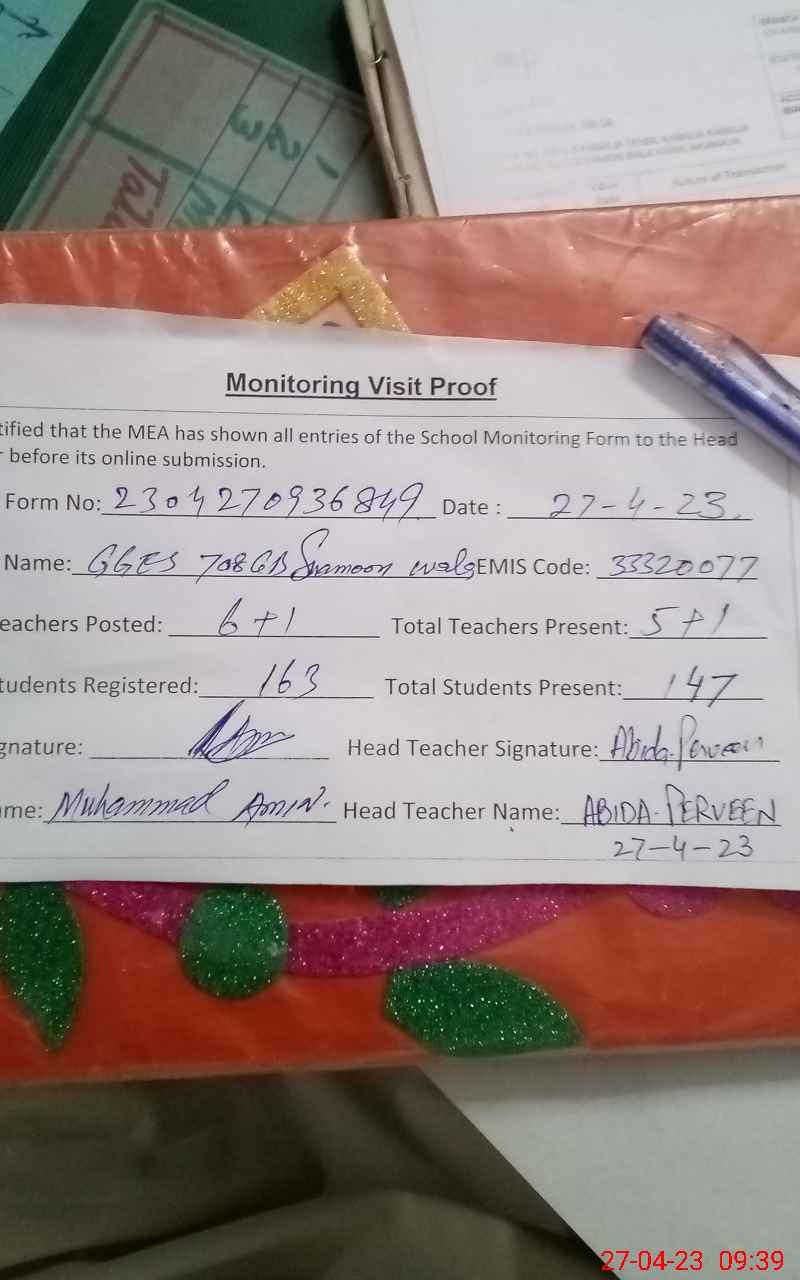 Monitoring Visit Proof
tified that the MEA has shown all entries of the School Monitoring Form to the Head
r before its online submission.
Form No: 2304270936849 Date : 27-4-23
Name: GGES 708GB wala EMIS Code: 33320077
eachers Posted: 6+1 Total Teachers Present: 5+1
tudents Registered: 163 Total Students Present: 147
gnature: Head Teacher Signature: Abida Perveen
me: Muhammad Amin. Head Teacher Name: ABIDA-PERVEEN
27-4-23
27-04-23 09:39